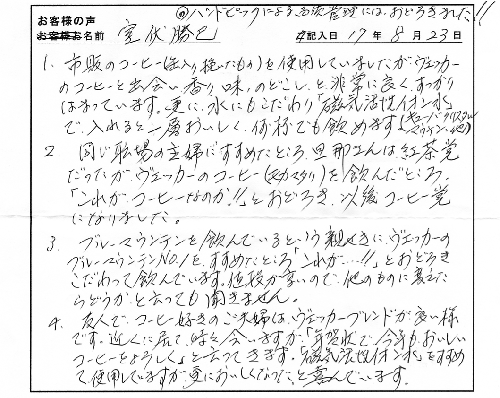 お客様の声
◎ハンドピックによる品質管理には、おどろきました!!
お客様お名前 室伏勝己 ご記入日 17年8月23日
1. 市販のコーヒー(豆入り挽いたもの)を使用していましたがヴェッカー
のコーヒーと出会い香り、味、のどごし、と非常に良く、すっかり
はまっています。更に、水にもこだわり「磁気活性イオン水」
で、入れると一層おいしく、何杯でも飲めます。
2 同じ職場の主婦にすすめたところ、旦那さんは紅茶党
だったがヴェッカーのコーヒーを飲んだところ、
「これがコーヒーなのか!!」とおどろき、以後コーヒー党
になりました。
3. ブルーマウンテンを飲んでいるという親せきに、ヴェッカーの
ブルーマウンテンNO.1をすすめたところ「これが…!!」とおどろき
こだわって飲んでいます。値段が高いので、他のものに変えた
らどうかと云っても聞きません。
4. 友人で、コーヒー好きのご夫婦は、ヴェッカーブレンドが良い様
です。近くに居て、時々会いますが、「年賀状で今年もおいしい
コーヒーをよろしく」と云ってきます。「磁気活性イオン水」をすすめ
て、使用していますが、更においしくなったと喜んでいます。